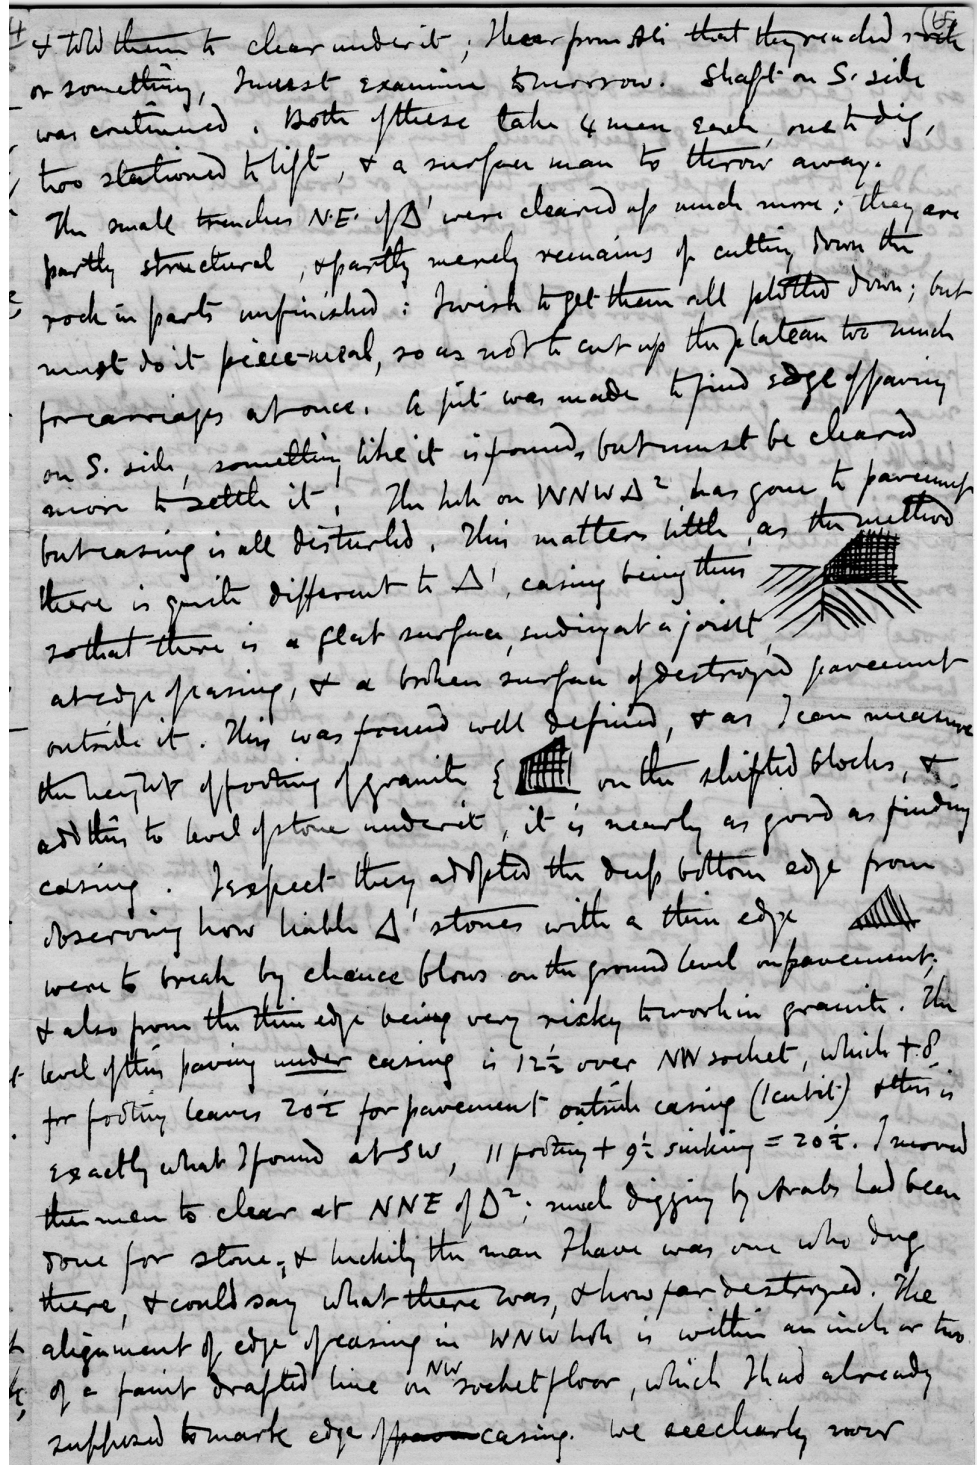 & told them to clear under it; I hear from Ali that they reached rock
or something, I must examine tomorrow. Shaft on S. side
was continued. Both of these take 4 men each, one to dig,
two stationed to lift, & a surface man to throw away.
The small trenches N.E. of Δ¹ were cleared up much more; they are
partly structural, & partly merely remains of cutting down the
rock in parts unfinished: I wish to get them all plotted down; but
must do it piece-meal, so as not to cut up the plateau too much
for carriages at once. A pit was made to find edge of paving
on S. side, something like it is found, but must be cleared
more to settle it. The hole on WNW Δ² has gone to pavement
but casing is all disturbed. This matters little, as the method
there is quite different to Δ¹, casing being thus
so that there is a flat surface, ending at a joint
at edge of casing, & a broken surface of destroyed pavement
outside it. This was found well defined, & as I can measure
the height of footing of granite { on the shifted blocks, &
add this to level of stone under it, it is nearly as good as finding
casing. I expect they adopted the deep bottom edge from
observing how liable Δ¹ stones with a thin edge
were to break by chance blows on the ground level or pavement;
& also from the thin edge being very risky to work in granite. The
level of this paving under casing is 12½ over NW socket, which + 8
for footing leaves 20½ for pavement outside casing (1 cubit) & this is
exactly what I found at SW, 11 footing + 9½ sinking = 20½. I moved
the men to clear at NNE of Δ²; much digging by Arabs had been
done for stone, & luckily the man I have was one who dug
there, & could say what there was, & how far destroyed. The
alignment of edge of casing in WNW hole is within an inch or two
of a faint drafted line on NW socket floor, which I had already
supposed to mark edge of casing. We see clearly now